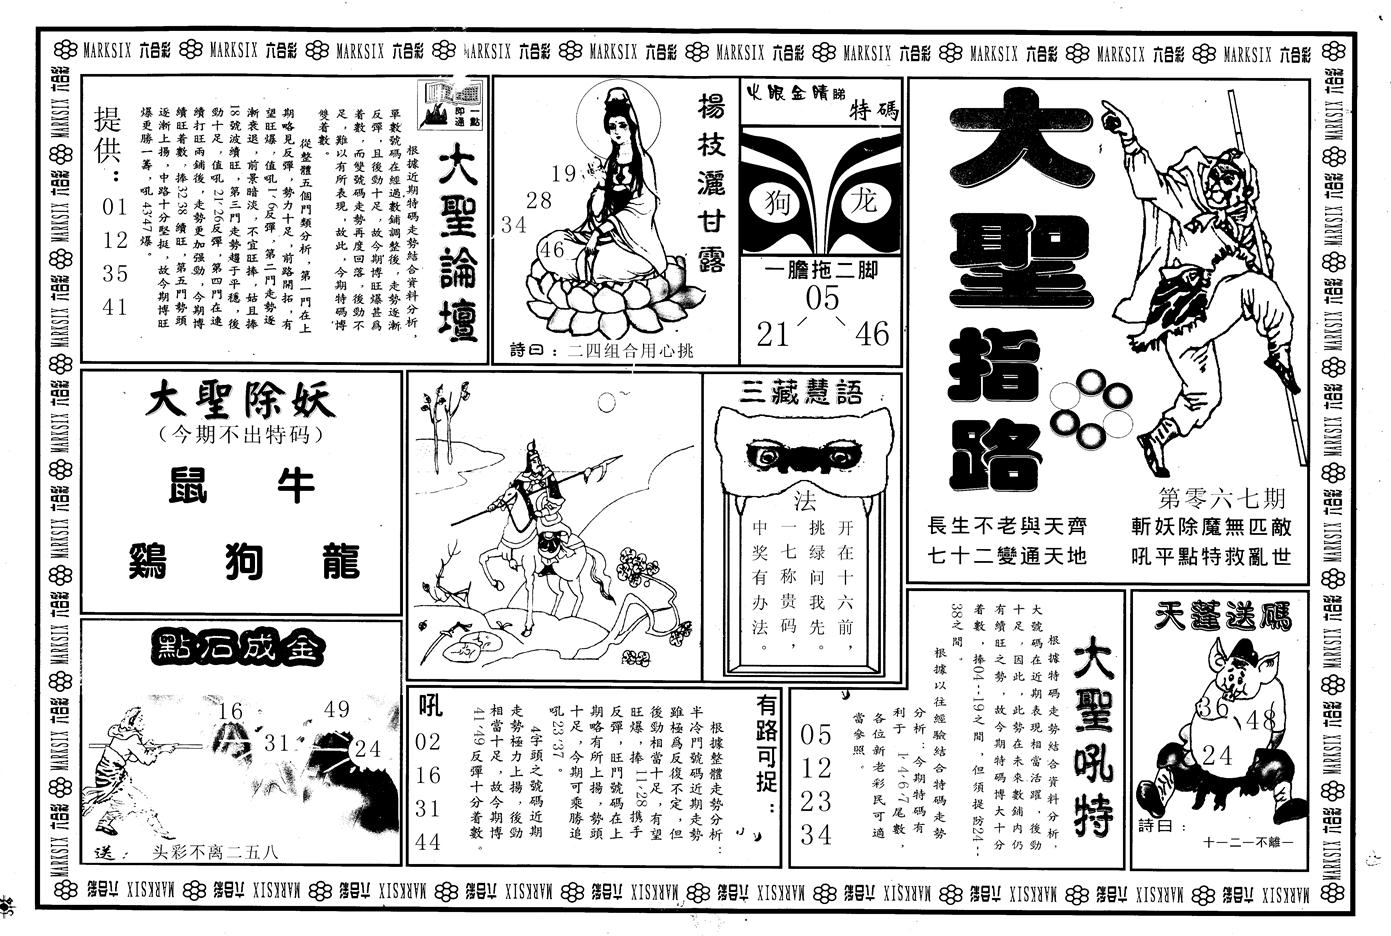 MARKSIX 六合彩 MARKSIX 六合彩 MARKSIX 六合彩 MARKSIX 六合彩 MARKSIX 六合彩 MARKSIX 六合彩 MARKSIX 六合彩 MARKSIX 六合彩 MARKSIX 六合彩 MARKSIX 六合彩
大聖指路
第零六七期
斬妖除魔無匹敵
吼平點特救亂世
長生不老與天齊
七十二變通天地
火眼金睛睇
特碼
狗
龙
一膽拖二脚
05
21
46
楊枝灑甘露
19
28
34
46
詩曰：二四组合用心挑
一點即通
大聖論壇
根據近期特碼走勢結合資料分析，
單數號碼在經過數鋪調整後，走勢逐漸
反彈，且後勁十足，故今期博旺爆甚爲
着數，而雙號碼走勢再度回落，後勁不
足，難以有所表現，故此，今期特碼博
雙着數。
從整體五個門類分析，第一門在上
期略見反彈，勢力十足，前路開拓，有
望旺爆，值吼1·6反彈，第二門走勢逐
漸衰退，前景暗淡，不宜旺捧，姑且捧
18號波續旺，第三門走勢趨于平穩，後
勁十足，值吼21·26反彈，第四門在連
續打旺兩鋪後，走勢更加强勁，今期博
續旺着數，捧32·38續旺，第五門勢頭
逐漸上揚，中路十分堅挺，故今期博旺
爆更勝一籌，吼43·47爆。
提供：
01
12
35
41
大聖除妖
（今期不出特码）
鼠 牛
鷄 狗 龍
三藏慧語
法
开在十六前，
挑绿问我先。
一七称贵码，
中奖有办法。
點石成金
16
49
31
24
送： 头彩不离二五八
有路可捉：
根據整體走勢分析：
半冷門號碼近期走勢
雖極爲反復不定，但
後勁相當十足，有望
旺爆，捧11·28携手
反彈，旺門號碼在上
期略有所上揚，勢頭
十足，今期可乘勝追
吼23·37。
4字頭之號碼近期
走勢極力上揚，後勁
相當十足，故今期博
41·49反彈十分着數。
吼
02
16
31
44
大聖吼特
根據特碼走勢結合資料分析，
大號碼在近期表現相當活躍，後勁
十足，因此，此勢在未來數鋪内仍
有續旺之勢，故今期特碼博大十分
着數，捧04--19之間，但須提防24--
38之間。
根據以往經驗結合特碼走勢
分析：今期特碼有
利于1·4·6·7尾數，
各位新老彩民可適
當參照。
05
12
23
34
天蓬送碼
36
48
24
詩曰：
十一二一不離一